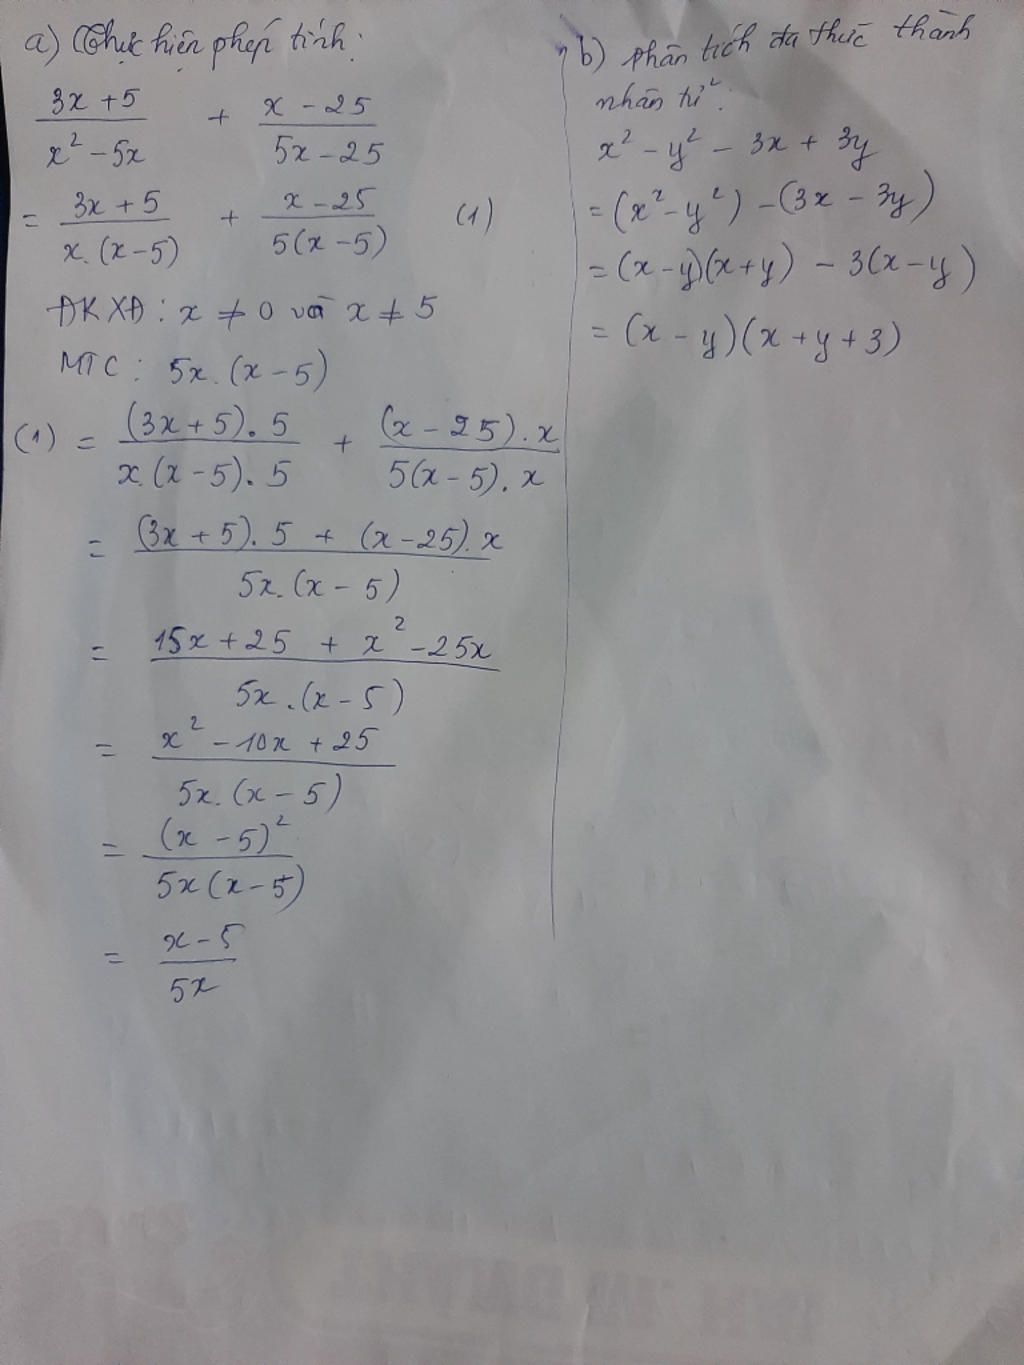 a) Thực hiện phép tính:
3x + 5 / x² - 5x + x - 25 / 5x - 25
= 3x + 5 / x.(x - 5) + x - 25 / 5(x - 5) (1)
ĐKXĐ: x ≠ 0 và x ≠ 5
MTC: 5x.(x - 5)
(1) = (3x + 5).5 / x.(x - 5).5 + (x - 25).x / 5(x - 5).x
= (3x + 5).5 + (x - 25).x / 5x.(x - 5)
= 15x + 25 + x² - 25x / 5x.(x - 5)
= x² - 10x + 25 / 5x.(x - 5)
= (x - 5)² / 5x(x - 5)
= x - 5 / 5x
b) phân tích đa thức thành
nhân tử:
x² - y² - 3x + 3y
= (x² - y²) - (3x - 3y)
= (x - y)(x + y) - 3(x - y)
= (x - y)(x + y + 3)